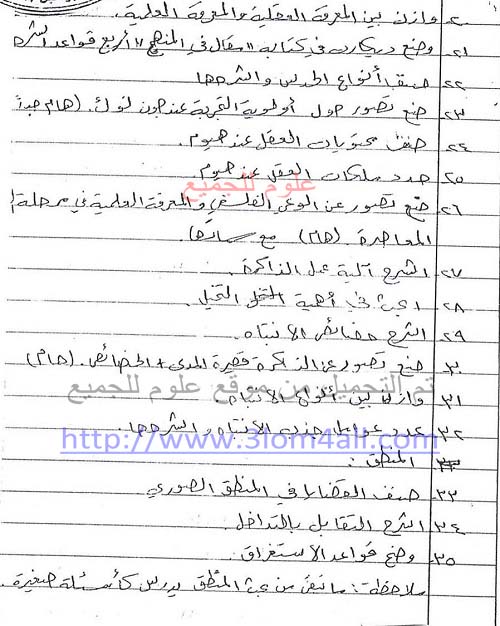 ٢٠ وازن بين المعرفة العقلية والمعرفة العلمية.
٢١ وضع ديكارت في كتابه "مقال في المنهج" أربع قواعد اشرح
٢٢ صنف أنواع الحدس واشرحها
٢٣ ضع تصور حول أولوية التجربة عند جون لوك. (هام جداً
٢٤ صنف محتويات العقل عند هيوم.
٢٥ حدد ملكات العقل عند هيوم.
علوم للجميع
٢٦ ضع تصور عن الوعي الفلسفي والمعرفة العلمية في مرحلة
المعاصرة. (هام) مع
٢٧ اشرح آلية عمل الذاكرة.
٢٨ ابحث في أهمية التخيل.
٢٩ اشرح خصائص الانتباه.
٣٠ ضع تصور عن الذاكرة قصيرة المدى + الخصائص. (هام)
تم التحميل من موقع علوم للجميع
٣١ وازن بين أنواع الانتباه
٣٢ عدد عوامل جذب الانتباه واشرحها.
http://www.3lom4all.com
المنطق:
٣٣ صنف القضايا في المنطق الصوري
٣٤ اشرح التقابل بالتداخل.
٣٥ وضح قواعد الاستغراق.
ملاحظة: ما تبقى من بحث المنطق يدرس كأسئلة صغيرة.